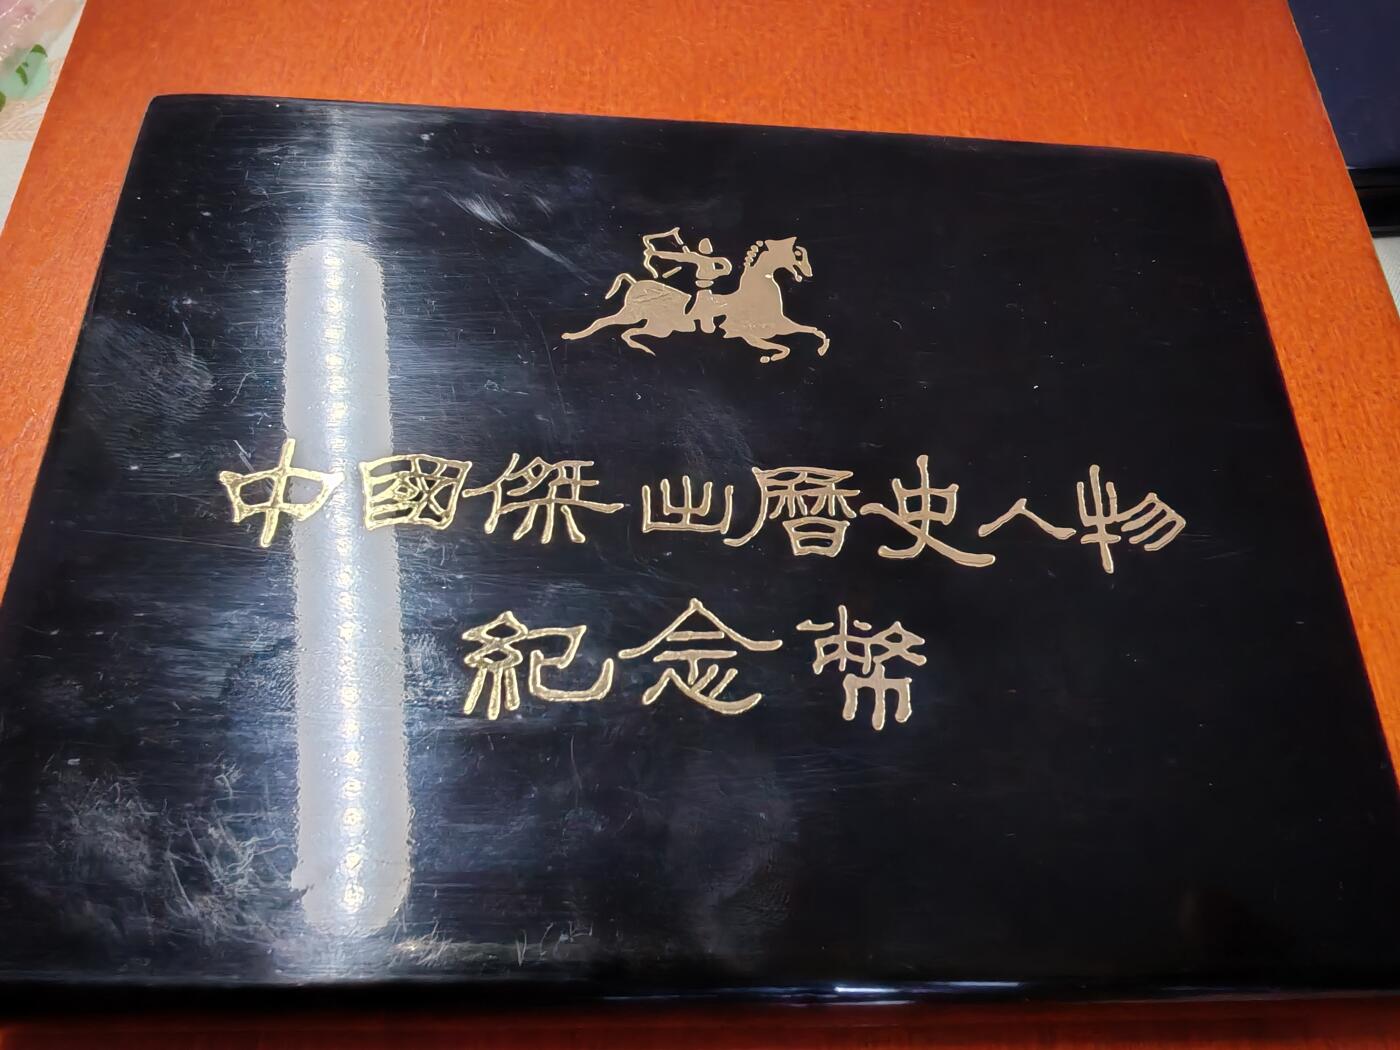 中國傑出曆史人物
紀念幣